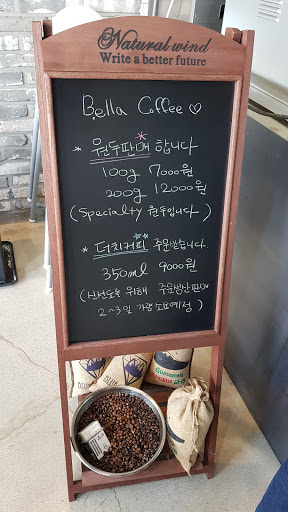 Natural wind
Write a better future
Bella Coffee ♡
* 원두판매 합니다
100g 7000원
200g 12000원
(Specialty 원두입니다)
* 더치커피 주문받습니다.
350ml 9000원
(신선도를 위해 주문생산판매
2~3일 가량 소요예정)
Guatemala